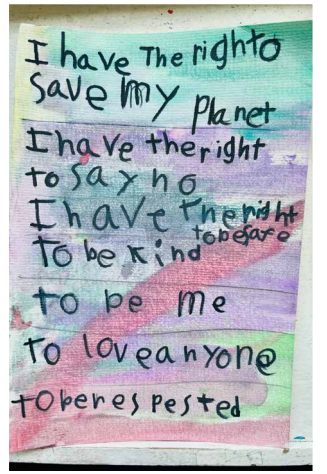 I have The righto
Save my planet
I have the right
to say no
I have the right
to be safe
To be kind
to be me
To love anyone
to be res pested